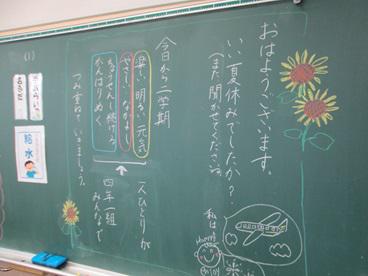 おはようございます。
いい夏休みでしたか？
（また聞かせてください。）
今日から二学期
楽しい 明るい 元気
やさしい なかよく
ちょうせんし続ける
がんばりぬく
一人ひとりが
四年一組
みんなで
つみ重ねていきましょう。
私は
enjoy
給水